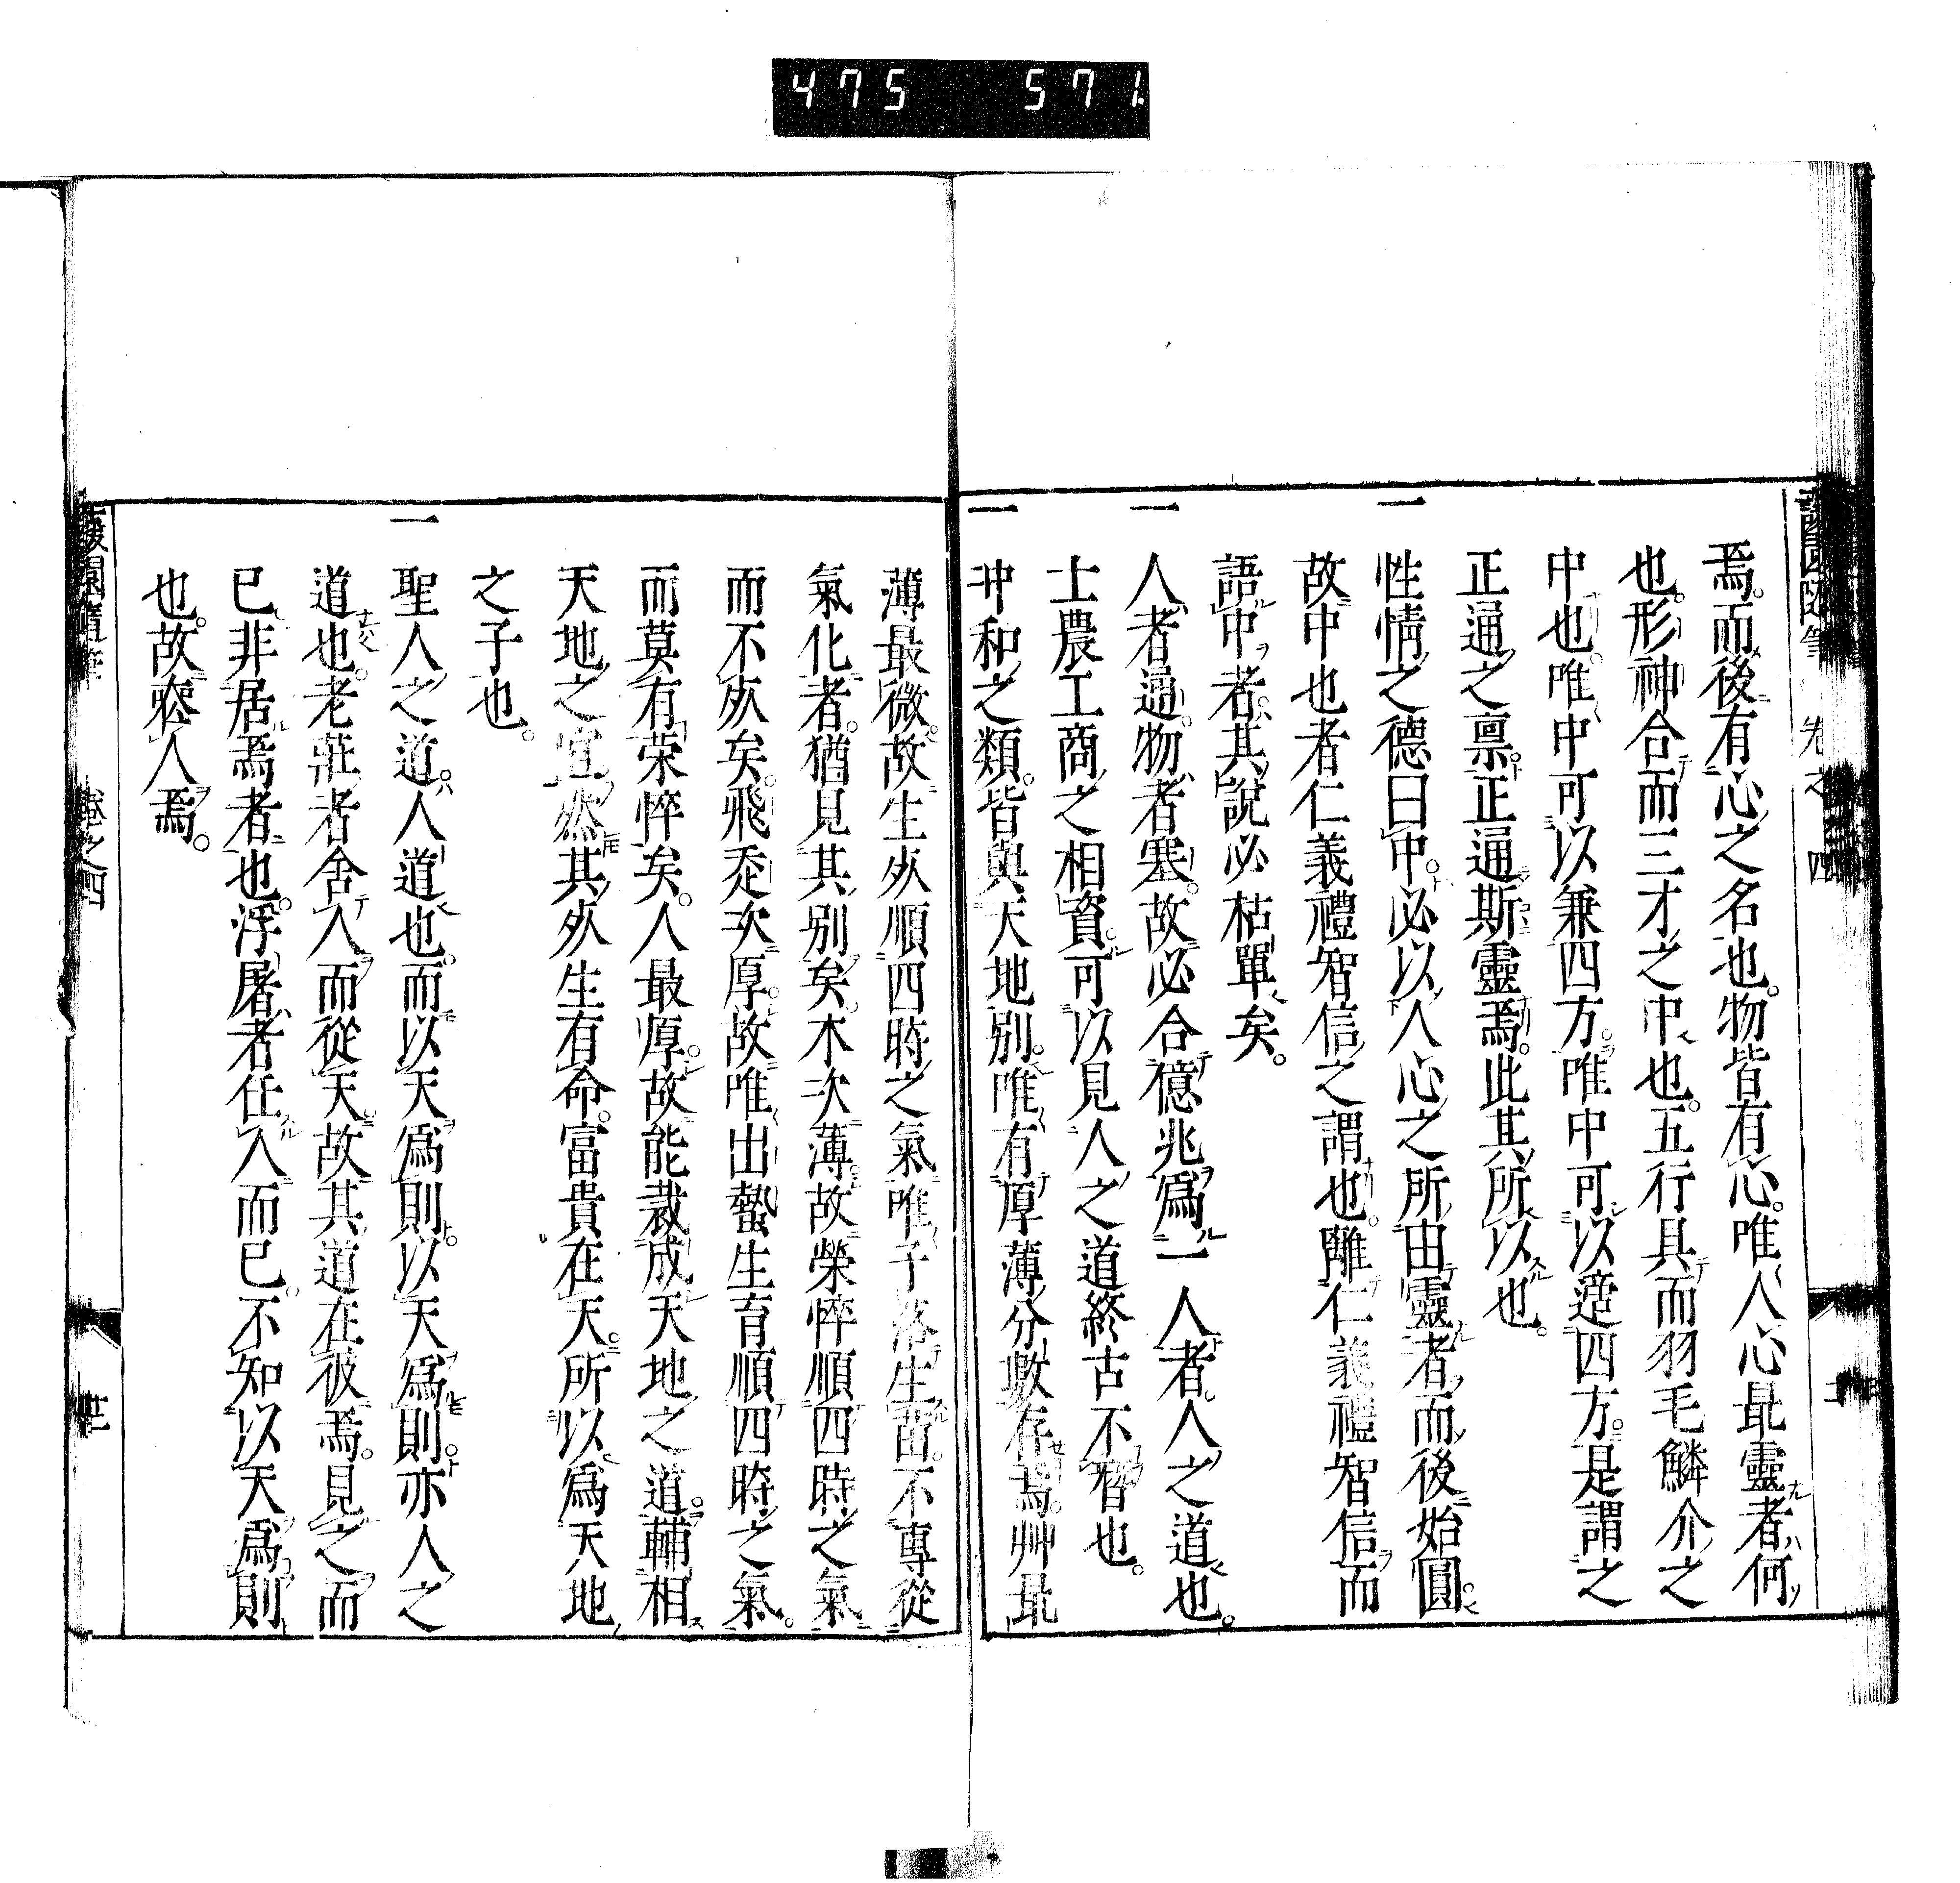 475 571
蘐園隨筆 卷之四
焉。而後有心之名也。物皆有心。唯人心最靈者。何
也。形神合而三才之中也。五行具而羽毛鱗介之
中也。唯中可以兼四方。唯中可以適四方。是謂之
正通之稟。正通斯靈焉。此其所以也。
一 性情之德曰中。必以人心之所由靈者。而後始圓。
故中也者仁義禮智信之謂也。離仁義禮智信而
語中者。其說必枯單矣。
一 人者通。物者塞。故必合億兆爲一人者。人之道也。
士農工商之相資。可以見人之道終古不替也。
一 中和之類。皆與天地別。唯有厚薄分數存焉。艸最
薄最微。故生死順四時之氣。唯子落生苗。不專從
氣化者。猶見其別矣。木次薄。故榮悴順四時之氣
而不死矣。飛走次厚。故唯出蟄生育順四時之氣。
而莫有荣悴矣。人最厚。故能裁成天地之道。輔相
天地之宜。然其死生有命。富貴在天。所以爲天地
之子也。
一 聖人之道。人道也。而以天爲則。以天爲則。亦人之
道也。老莊者舍人而從天。故其道在彼焉。見之而
已。非居焉者也。浮屠者任人而已。不知以天爲則
也。故壑人焉。
蘐園隨筆 卷之四 廿二